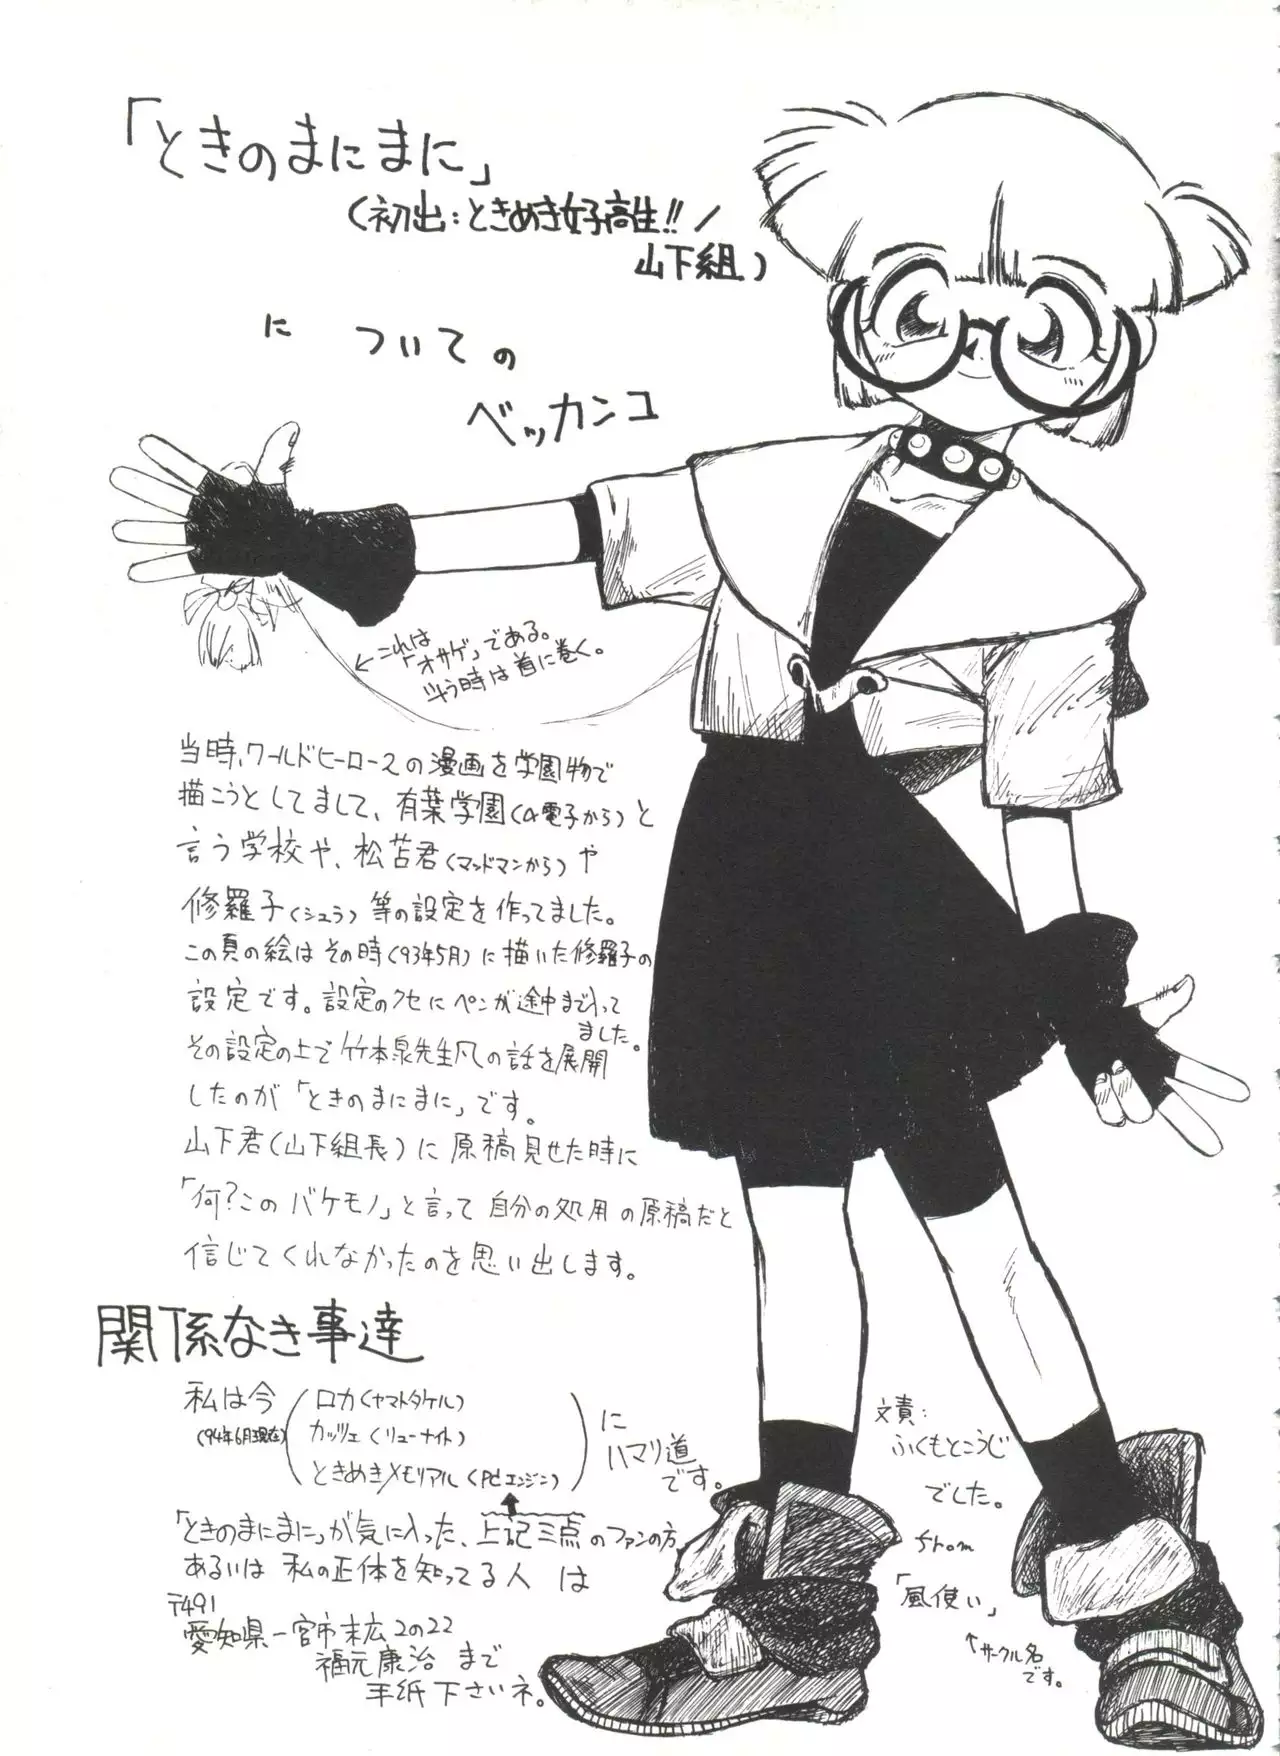 「ときのまにまに」
(初出：ときめき好高生!!／
山下組)
に ついての
ベッカンコ
←これは
「オサゲ」である。
斗う時は首に巻く。
当時、ワールドヒーロースの漫画を学園物で
描こうとしてまして、有葉学園(α電子から)と
言う学校や、松苔君(マッドマンから)や
修羅子(シュラ)等の設定を作ってました。
この頁の絵はその時(93年5月)に描いた修羅子の
設定です。設定のクセにペンが途中まで入って
ました。
その設定の上で竹本泉先生風の話を展開
したのが「ときのまにまに」です。
山下君(山下組長)に原稿見せた時に
「何?このバケモノ」と言って自分の処用の原稿だと
信じてくれなかったのを思い出します。
関係なき事達
私は今
(94年6月現在)
ロカ(ヤマトタケル)
カッツェ(リューナイト)
ときめきメモリアル(PCエンジン)
に
ハマリ道
です。
「ときのまにまに」が気に入った、上記三点のファンの方、
あるいは 私の正体を知ってる人 は
〒491
愛知県一宮市末広2の22
福元康治 まで
手紙下さいネ。
文責：
ふくもとこうじ
でした。
from
「風使い」
↑サークル名
です。